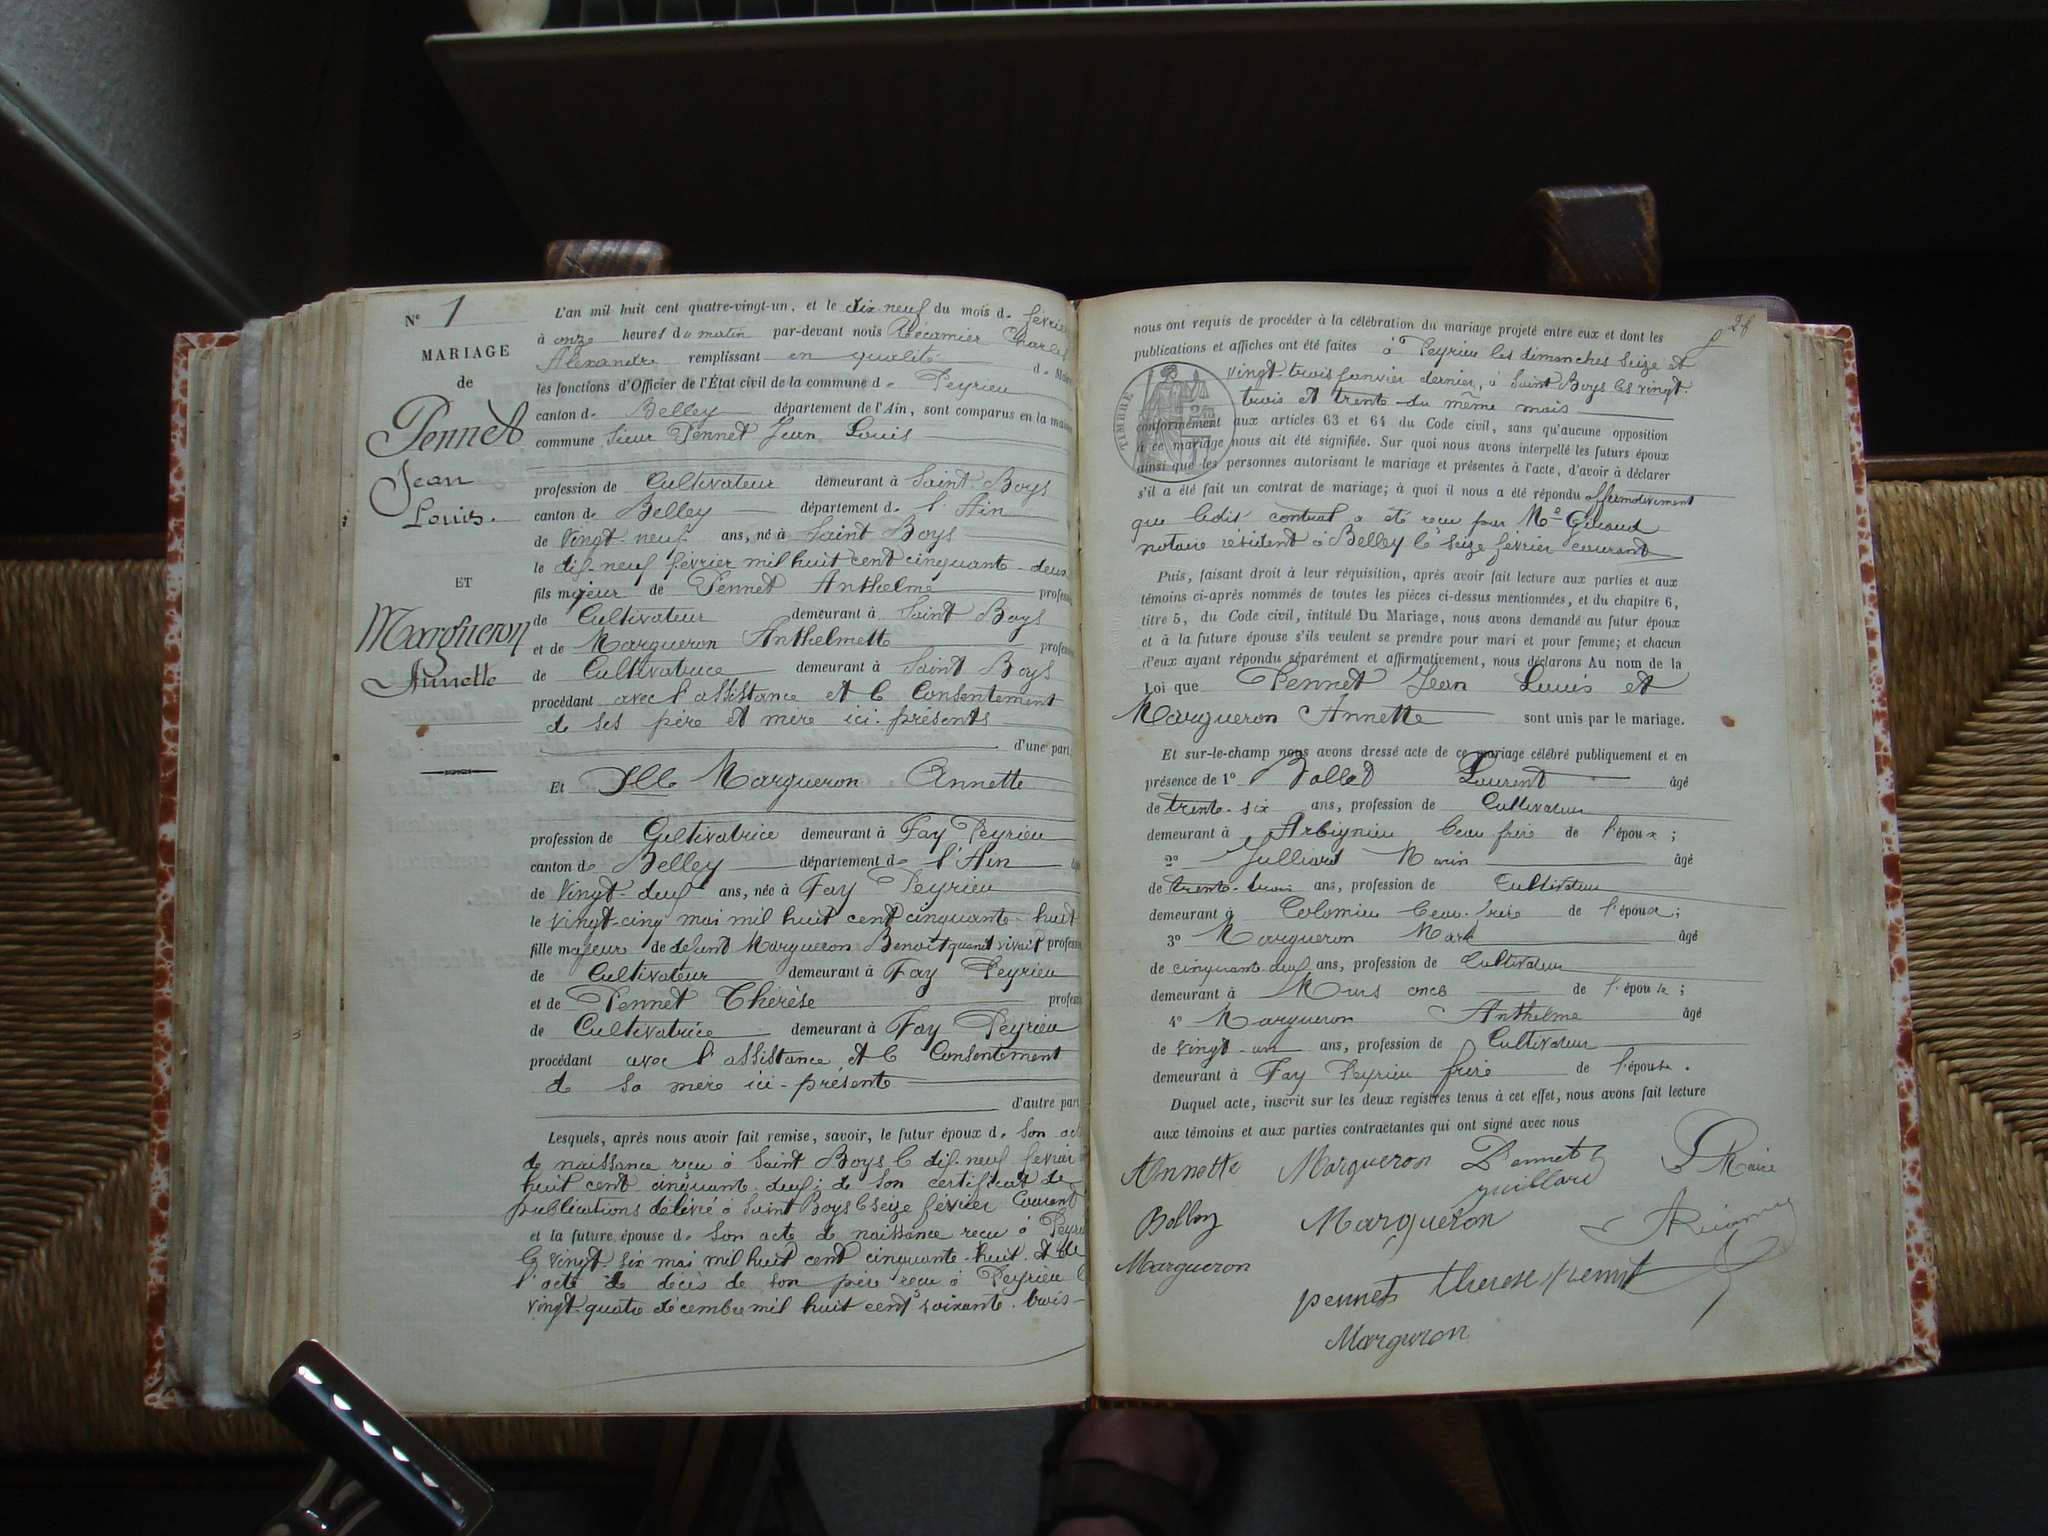 Nº 1
MARIAGE
de
Pennet
Jean
Louis.
ET
Margueron
Annette
L'an mil huit cent quatre-vingt-un, et le dix neuf du mois de février
à onze heures du matin par-devant nous Récamier Charles
Alexandre remplissant en qualité de Maire
les fonctions d'Officier de l'État civil de la commune de Peyrieu
canton de Belley département de l'Ain, sont comparus en la maison
commune Sieur Pennet Jean Louis
profession de Cultivateur demeurant à Saint Boys
canton de Belley département de l'Ain
de vingt-neuf ans, né à Saint Boys
le dix-neuf février mil huit cent cinquante-deux
fils majeur de Pennet Anthelme profession
de Cultivateur demeurant à Saint Boys
et de Margueron Anthelmette profession
de Cultivatrice demeurant à Saint Boys
procédant avec l'assistance et le Consentement
de ses père et mère ici-présents
d'une part,
Et Dlle Margueron Annette
profession de Cultivatrice demeurant à Fay Peyrieu
canton de Belley département de l'Ain
de vingt-deux ans, née à Fay Peyrieu
le vingt-cinq mai mil huit cent cinquante-huit
fille majeure de défunt Margueron Benoit quand vivait profession
de Cultivateur demeurant à Fay Peyrieu
et de Pennet Thérèse profession
de Cultivatrice demeurant à Fay Peyrieu
procédant avec l'assistance et le Consentement
de sa mère ici-présente
d'autre part
Lesquels, après nous avoir fait remise, savoir, le futur époux de son acte
de naissance reçu à Saint Boys le dix-neuf février
huit cent cinquante-deux; de son certificat de
publications délivré à Saint Boys le seize février Courant
et la future épouse de son acte de naissance reçu à Peyrieu
le vingt-six mai mil huit cent cinquante-huit et de
l'acte de décès de son père reçu à Peyrieu le
vingt-quatre décembre mil huit cent soixante-trois
26
nous ont requis de procéder à la célébration du mariage projeté entre eux et dont les
publications et affiches ont été faites à Peyrieu les dimanches seize et
vingt-trois janvier dernier, à Saint Boys les vingt-
trois et trente du même mois
TIMBRE
conformément aux articles 63 et 64 du Code civil, sans qu'aucune opposition
à ce mariage nous ait été signifiée. Sur quoi nous avons interpellé les futurs époux
ainsi que les personnes autorisant le mariage et présentes à l'acte, d'avoir à déclarer
s'il a été fait un contrat de mariage; à quoi il nous a été répondu affirmativement
que ledit contrat a été reçu par Me
notaire résident à Belley le seize février courant
Puis, faisant droit à leur réquisition, après avoir fait lecture aux parties et aux
témoins ci-après nommés de toutes les pièces ci-dessus mentionnées, et du chapitre 6,
titre 5, du Code civil, intitulé Du Mariage, nous avons demandé au futur époux
et à la future épouse s'ils veulent se prendre pour mari et pour femme; et chacun
d'eux ayant répondu séparément et affirmativement, nous déclarons Au nom de la
Loi que Pennet Jean Louis et
Margueron Annette sont unis par le mariage.
Et sur-le-champ nous avons dressé acte de ce mariage célébré publiquement et en
présence de 1º Laurent âgé
de trente-six ans, profession de Cultivateur
demeurant à Arbignieu beau-frère de l'époux;
2º Julliard Marin âgé
de trente-trois ans, profession de Cultivateur
demeurant à Colomieu beau-frère de l'époux;
3º Margueron Mark âgé
de cinquante-deux ans, profession de Cultivateur
demeurant à Murs oncle de l'épouse;
4º Margueron Anthelme âgé
de vingt-un ans, profession de Cultivateur
demeurant à Fay Peyrieu frère de l'épouse.
Duquel acte, inscrit sur les deux registres tenus à cet effet, nous avons fait lecture
aux témoins et aux parties contractantes qui ont signé avec nous
Annette Margueron Pennet Le Maire
Margueron
Margueron
pennet therese
Margueron